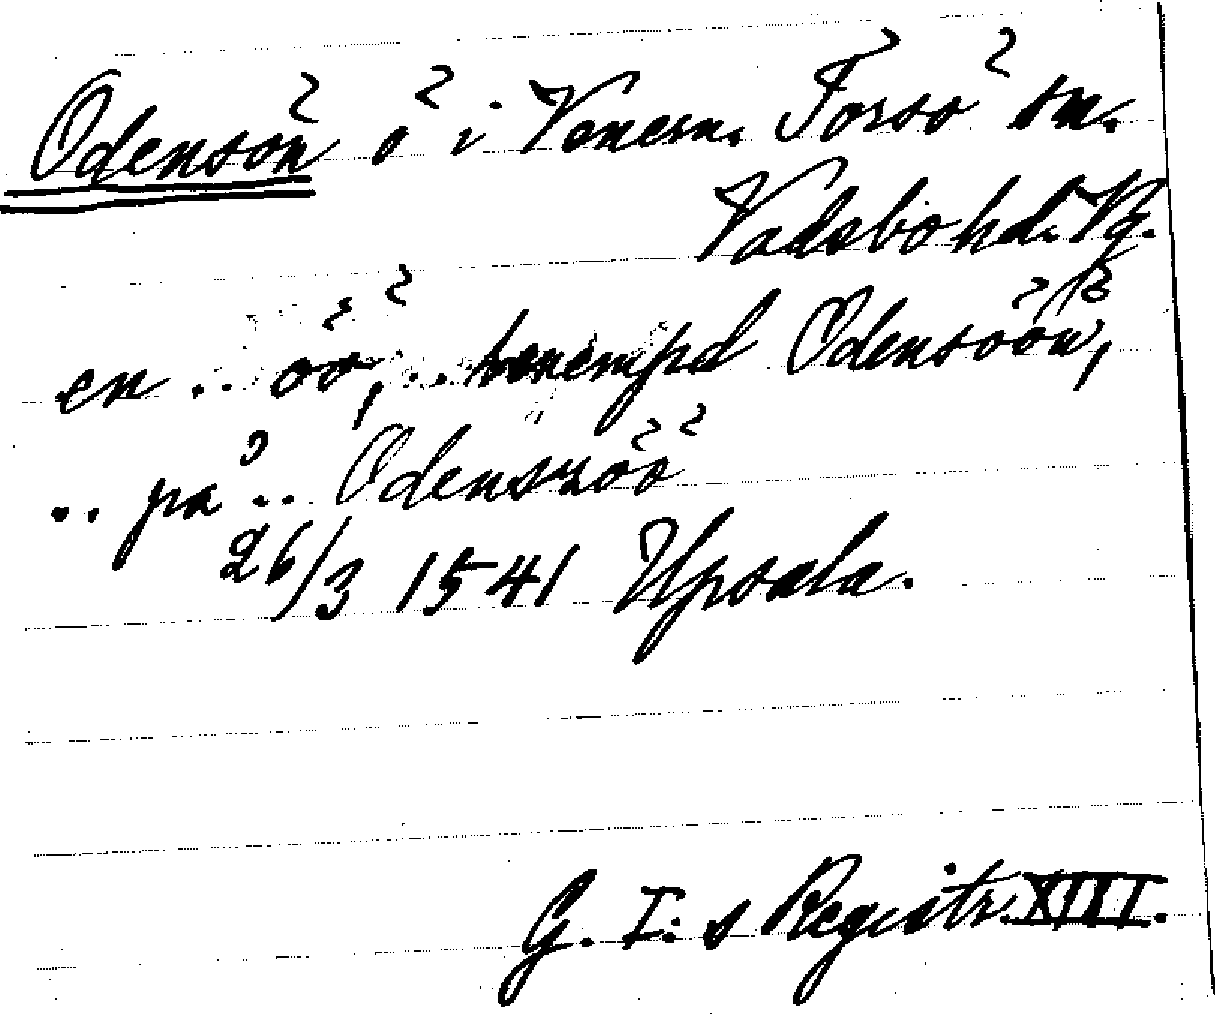 Odensön ö i Vänern. Torsö sn.
Vadsbo hd. Vg.
en .. öö, .. benempd Odensöön,
.. på .. Odenszöö
26/3 1541 Upsala.
G. I:s Registr. XIII.